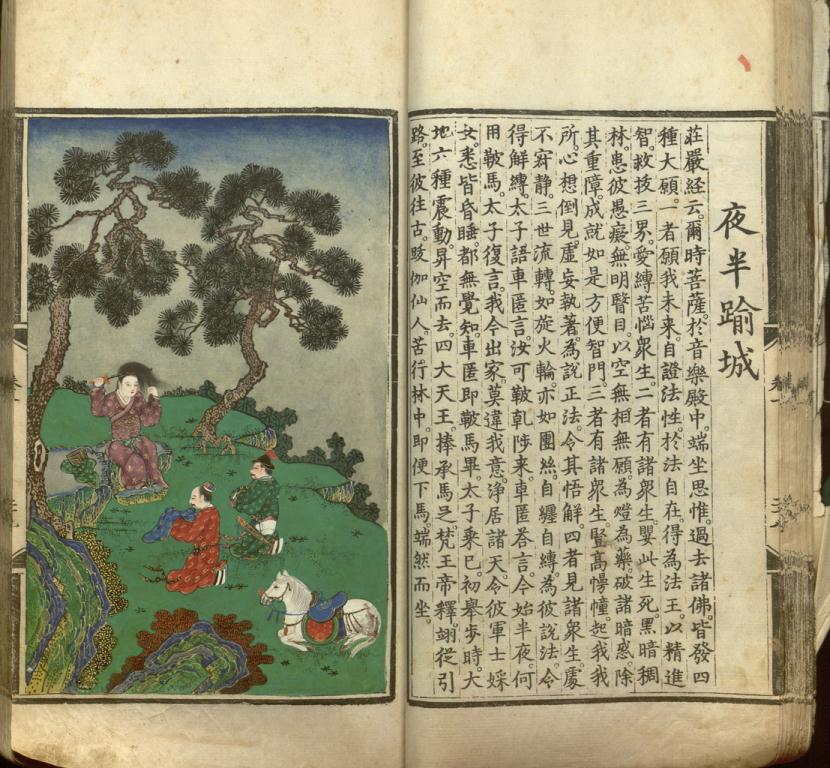 夜半踰城
莊嚴經云。爾時菩薩。於音樂殿中。端坐思惟。過去諸佛。皆發四
種大願。一者願我未來。自證法性。於法自在。得為法王。以精進
智。救拔三界。愛縛苦惱眾生。二者有諸眾生。嬰此生死。黑暗稠
林。患彼愚癡。無明瞖目。以空無相無願。為燈為藥。破諸暗惑。除
其重障。成就如是方便智門。三者有諸眾生。豎高慢幢。起我我
所。心想倒見。虛妄執著。為說正法。令其悟解。四者見諸眾生。處
不寂靜。三世流轉。如旋火輪。亦如團絲。自纏自縛。為彼說法。令
得解縛。太子語車匿言。汝可鞁乾陟來。車匿答言。今始半夜。何
用鞁馬。太子復言。我今出家。莫違我意。淨居諸天。令彼軍士婇
女。悉皆昏睡。都無覺知。車匿即鞁馬畢。太子乘已。初舉步時。大
地六種震動。昇空而去。四大天王。捧承馬足。梵王帝釋。翊從引
路。至彼往古。跋伽仙人。苦行林中。即便下馬。端然而坐。